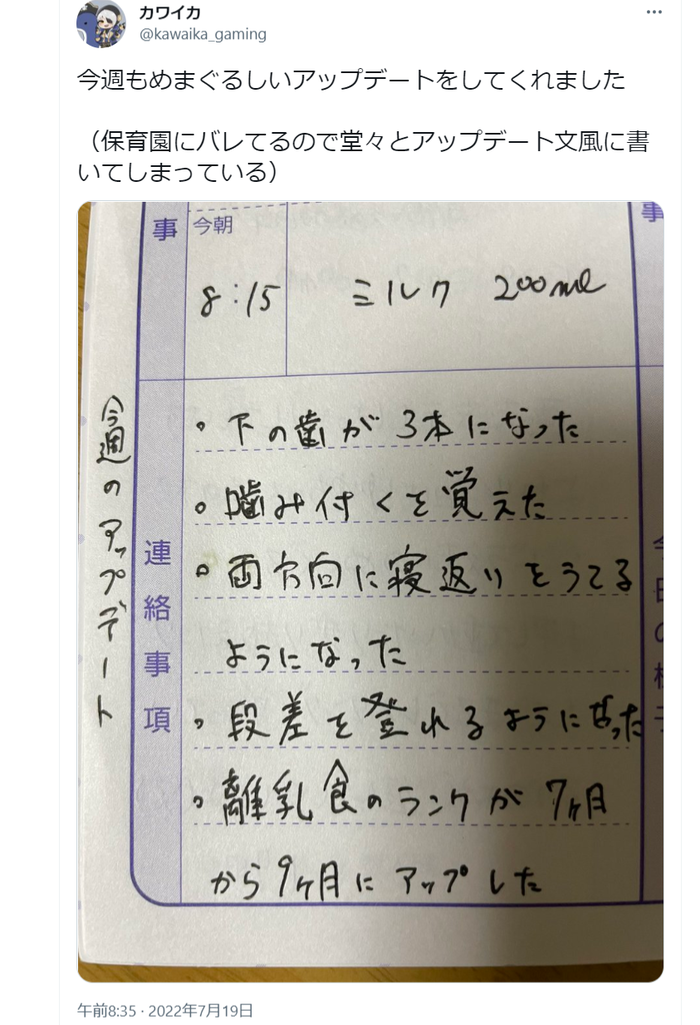 カワイカ
@kawaika_gaming
今週もめまぐるしいアップデートをしてくれました
（保育園にバレてるので堂々とアップデート文風に書
いてしまっている）
事
今朝
8:15 ミルク 200ml
今週のアップデート
連絡事項
。下の歯が3本になった
。噛み付くを覚えた
。両方向に寝返りをうてる
ようになった
。段差を登れるようになった
。離乳食のランクが7ヶ月
から9ヶ月にアップした
午前8:35 · 2022年7月19日